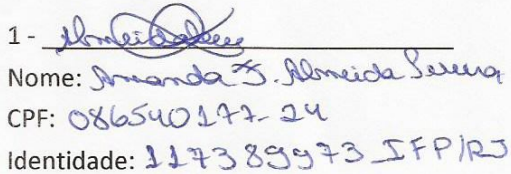 1 - Almeida
Nome: Amanda F. Almeida
CPF: 086540177-24
Identidade: 117389973 IFP/RJ